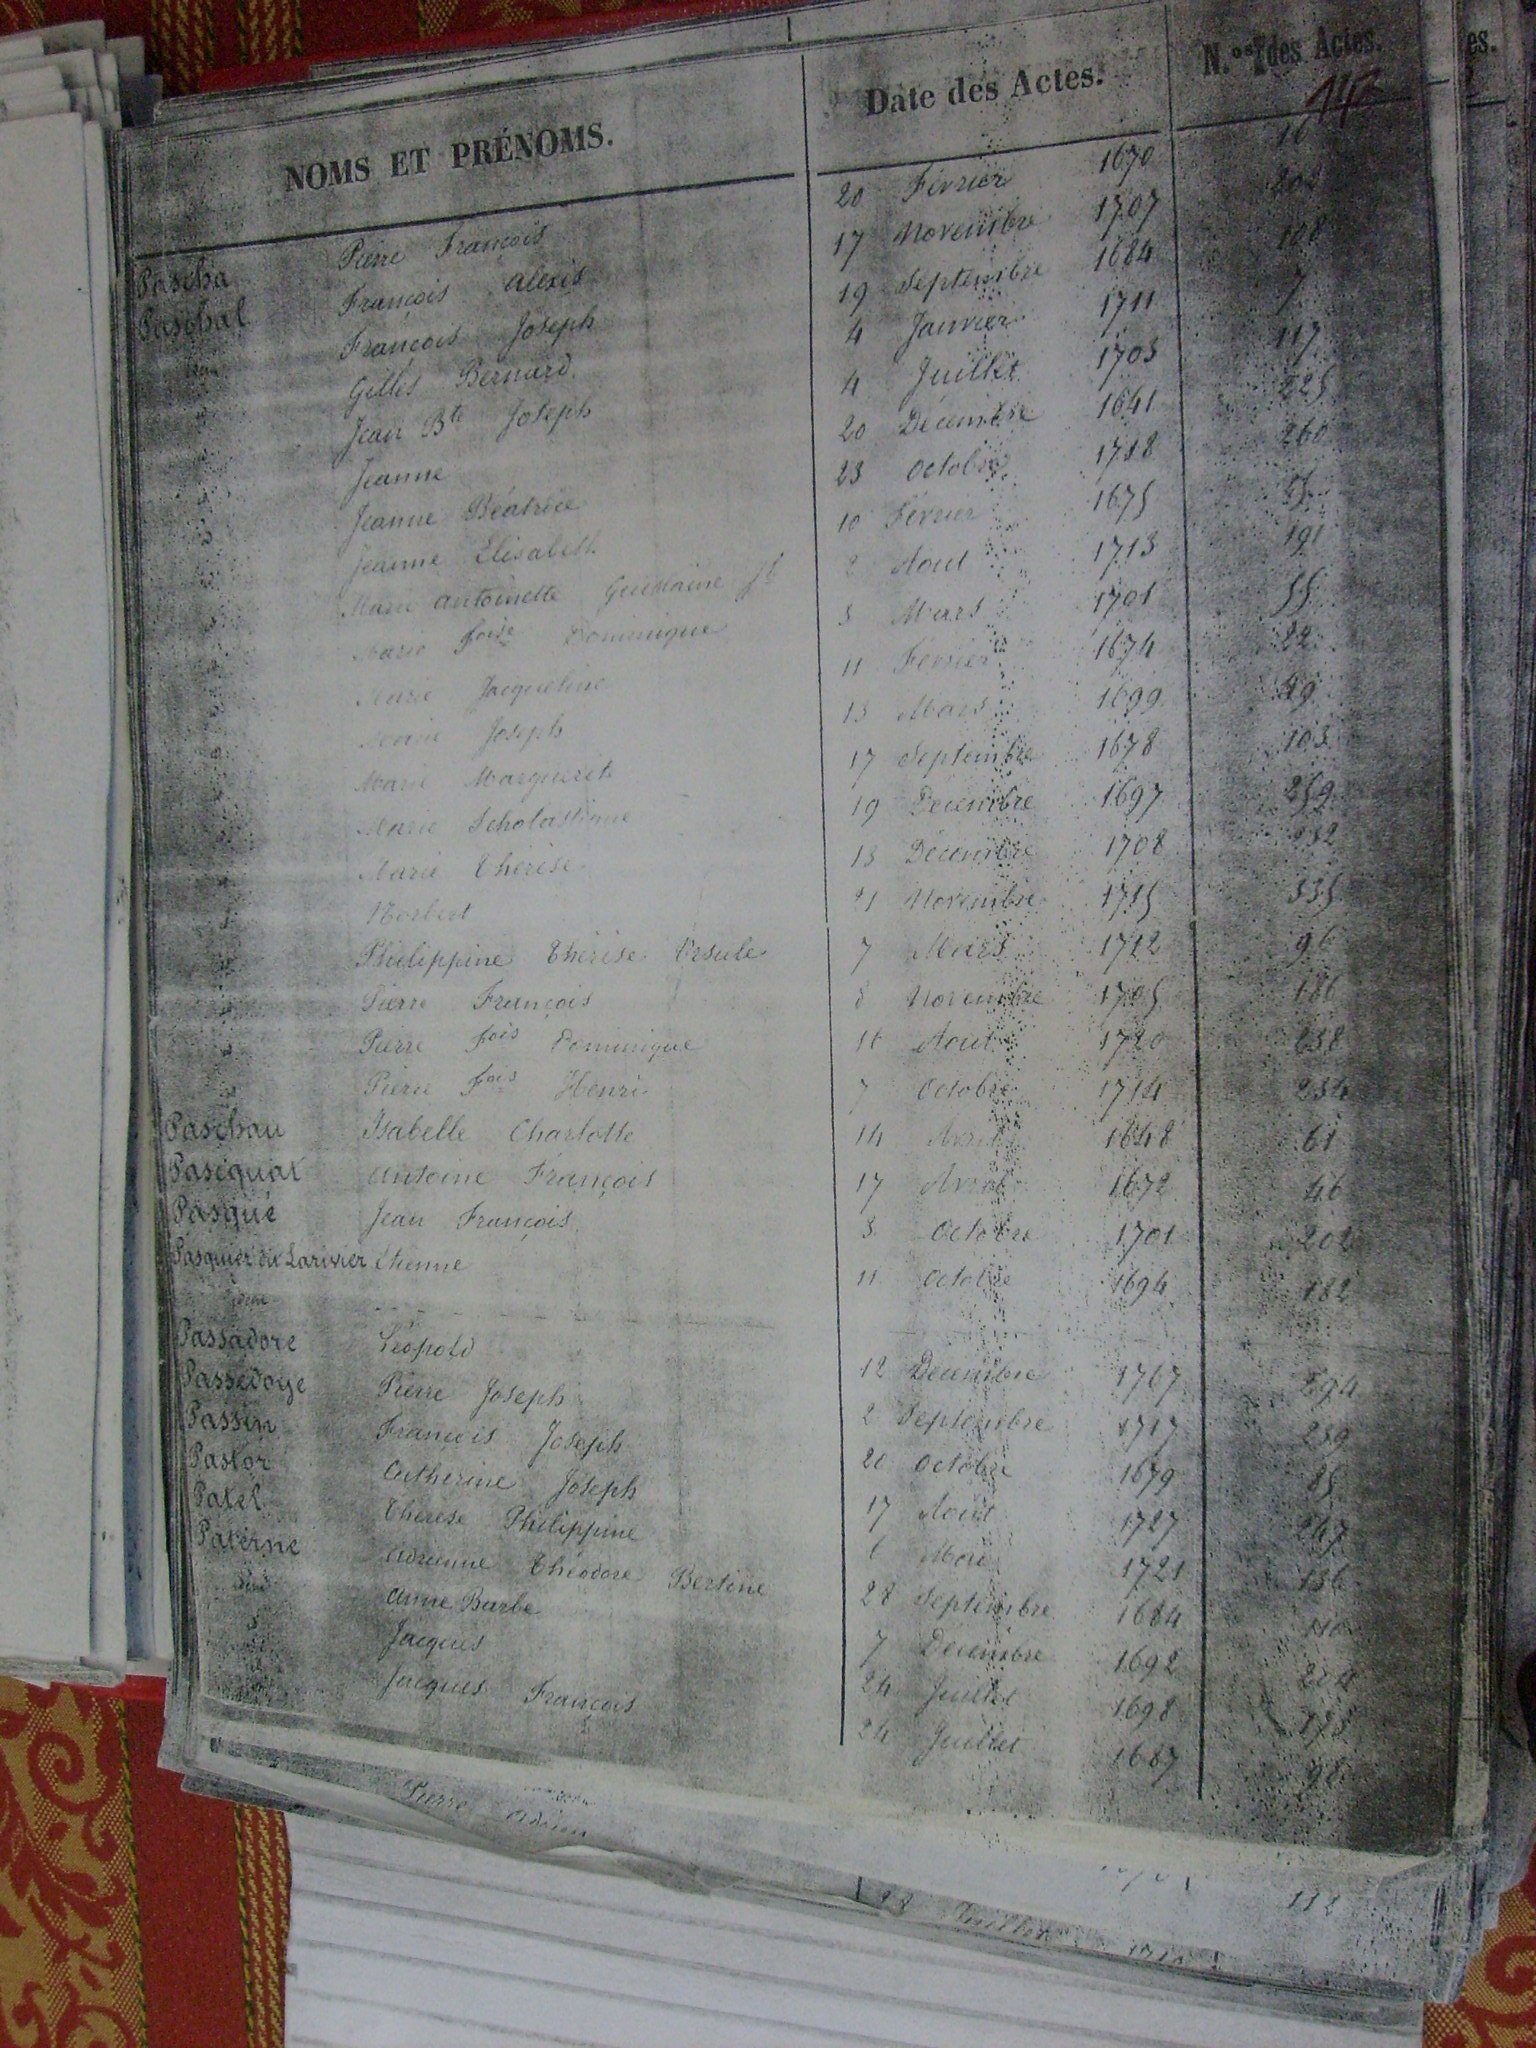 NOMS ET PRÉNOMS. Date des Actes. N.os des Actes. es.
Pascha Pierre François 20 Février 1670
Paschal François Alexis 17 Novembre 1707 202
François Joseph 19 Septembre 1684 108
Gilles Bernard 4 Janvier 1711 7
Jean Bte Joseph 4 Juillet 1703 117
Jeanne 20 Décembre 1641 225
Jeanne Béatrice 23 Octobre 1718 260
Jeanne Elisabeth 10 Février 1675
Marie Antoinette Guislaine Jh 2 Aout 1713 191
Marie Foise Dominique 3 Mars 1701 55
Marie Jacqueline 11 Février 1674 22
Marie Joseph 13 Mars 1699 49
Marie Marguerite 17 Septembre 1678 103
Marie Scholastique 19 Décembre 1697 259
Marie Thérèse 13 Décembre 1708 232
Norbert 21 Novembre 1715 335
Philippine Thérèse Ursule 7 Mars 1712 96
Pierre François 8 Novembre 1705 186
Pierre Fois Dominique 16 Aout 1720 238
Pierre Fois Henri 7 Octobre 1714 234
Paschau Isabelle Charlotte 14 Avril 1648 61
Pascqual Antoine François 17 Avril 1672 46
Pasqué Jean François 3 Octobre 1701 202
Pasquier de Larivier Etienne 11 Octobre 1694 182
Passadore Léopold 12 Décembre 1767 294
Passedoye Pierre Joseph 2 Septembre 1717 239
Passin François Joseph 20 Octobre 1679 85
Pastor Catherine Joseph 17 Aout 1727 247
Patel Thérèse Philippine 6 Mai 1721 136
Paterne Adrienne Théodore Bertine 28 Septembre 1684 110
Anne Barbe 7 Décembre 1692 204
Jacques 24 Juillet 1698 175
Jacques François 24 Juillet 1687 98
Pierre Adrien 112
28 Juillet